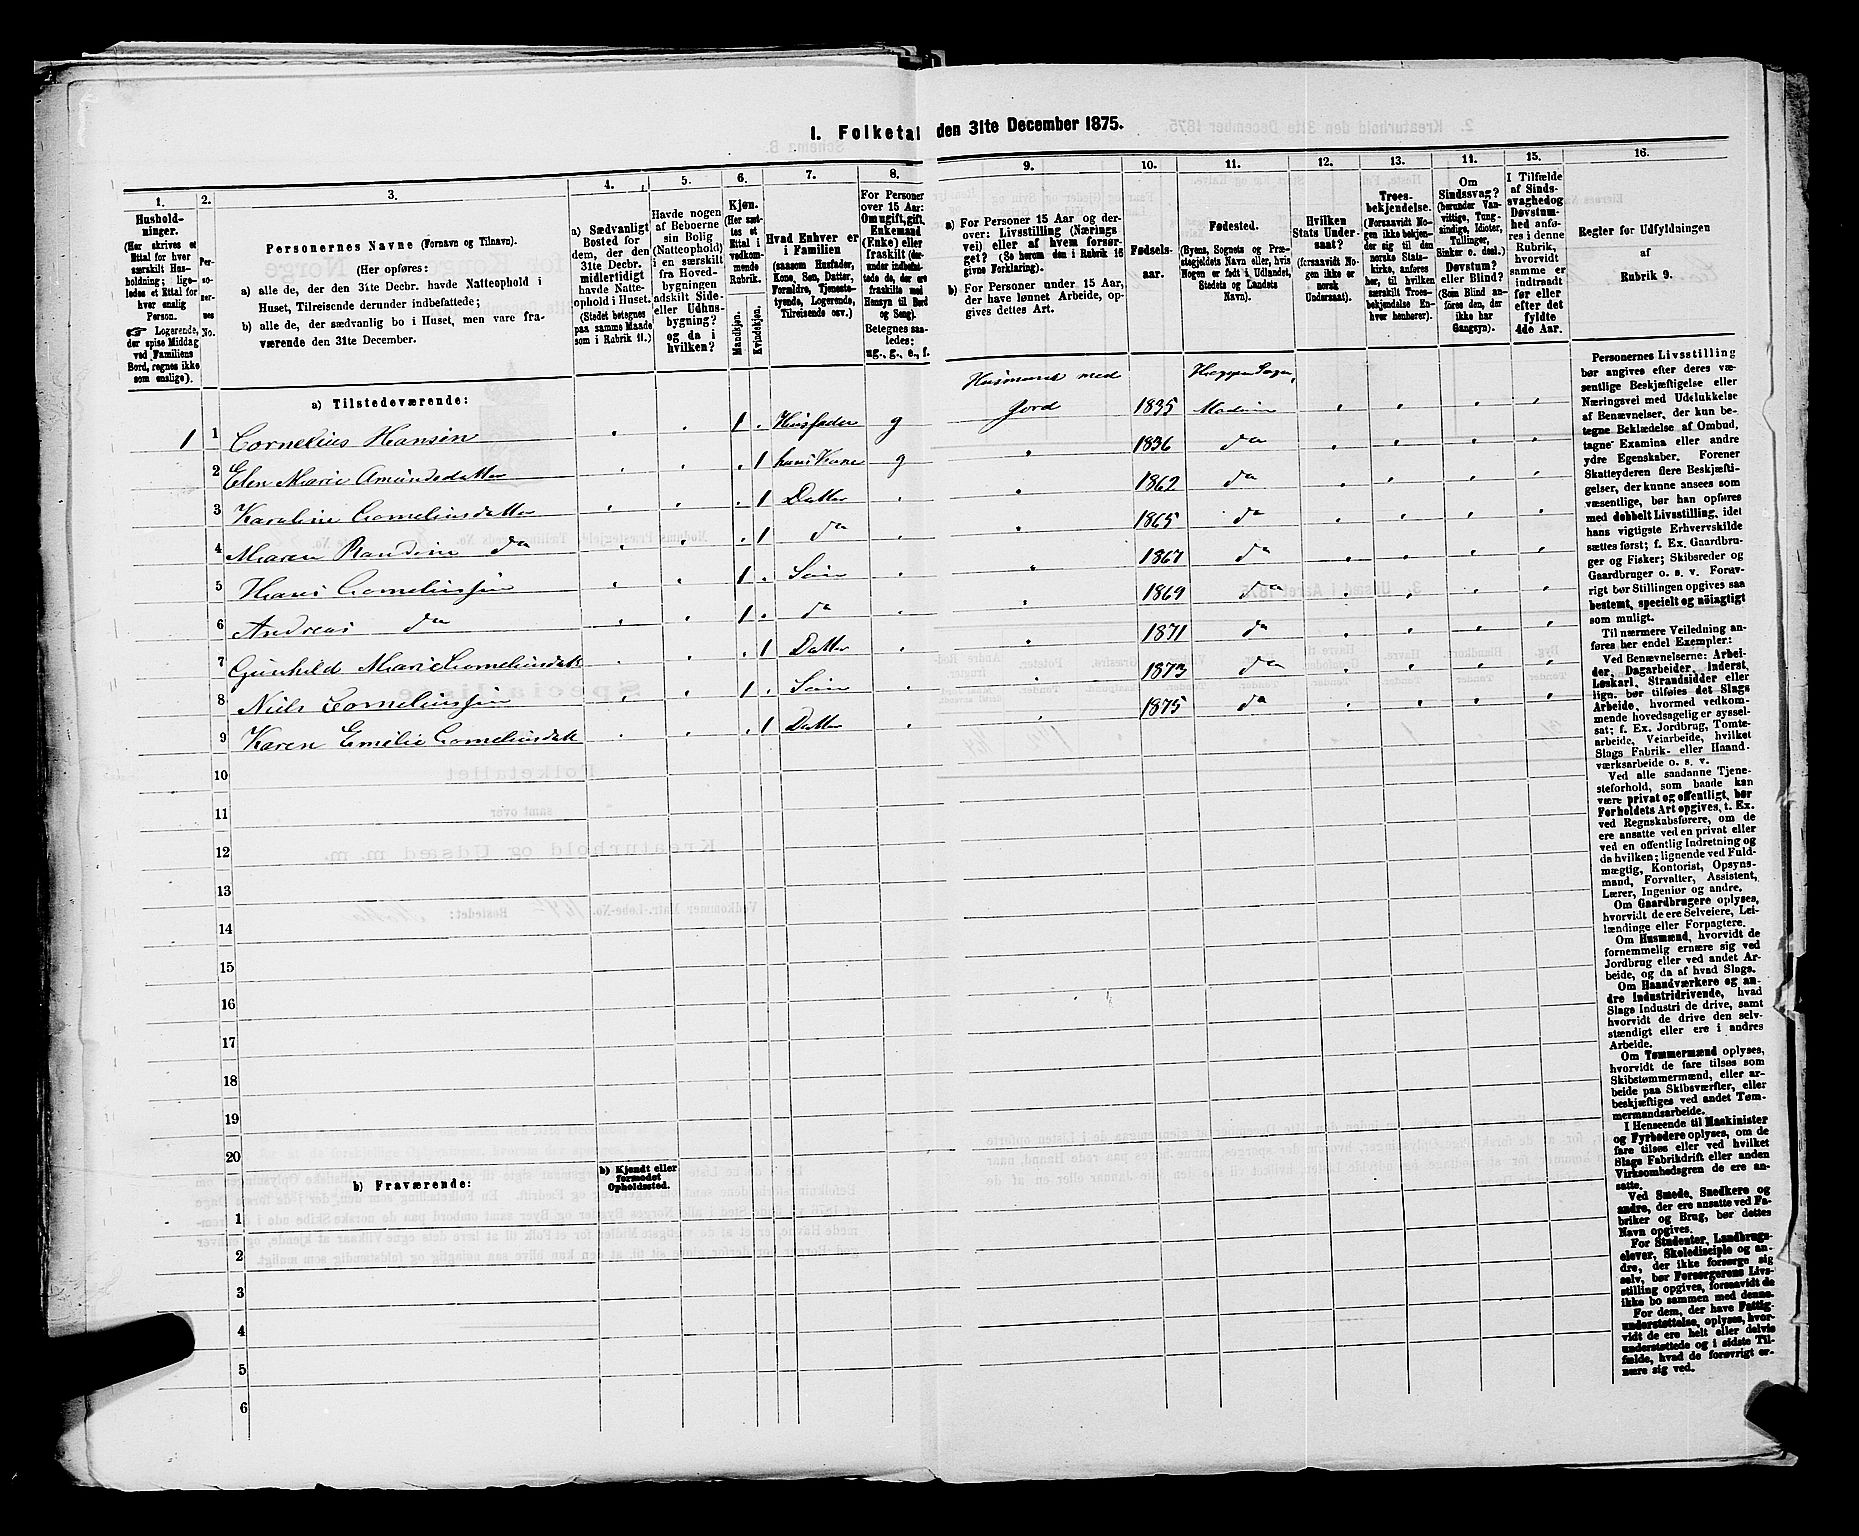 1. Folketal den 31te December 1875.
1.
Hushold-
ninger.
(Her skrives et
Ettal for hver
særskilt Hus-
holdning; lige-
ledes et Ettal for
hver enslig
Person.
Logerende,
der spise Middag
ved Familiens
Bord, regnes ikke
som enslige).
2.
Per-
so-
ner-
nes
No.
3.
Personernes Navne (Fornavn og Tilnavn).
(Her opføres:
a) alle de, der den 31te Decbr. havde Natteophold i
Huset, Tilreisende derunder indbefattede;
b) alle de, der sædvanlig bo i Huset, men vare fra-
værende den 31te December.
4.
a) Sædvanligt
Bosted for
dem, der den
31te Decbr.
midlertidigt
havde Natte-
ophold i Huset.
(Stedet betegnes
paa samme Maade
som i Rubrik 11.)
5.
Havde nogen
af Beboerne
sin Bolig
(Natteophold)
i en særskilt
fra Hoved-
bygningen
adskilt Side-
eller Udhus-
bygning?
og da i
hvilken?
6.
Kjøn.
(Her sæt-
tes et
Ettal i
vedkom-
mende
Rubrik.
Mandkjøn.
Kvindekjøn.
7.
Hvad Enhver er
i Familien
(saasom Husfader,
Kone, Søn, Datter,
Forældre, Tjeneste-
tyende, Logerende,
Tilreisende osv.)
8.
For Personer
over 15 Aar:
Om ugift, gift,
Enkemand
(Enke) eller
fraskilt (der-
under indbefat-
tede de, der ere
fraskilte med
Hensyn til Bord
og Seng).
Betegnes saa-
ledes:
ug., g., e., f.
9.
a) For Personer 15 Aar og der-
over: Livsstilling (Nærings
vei) eller af hvem forsør-
get? (Se herom den i Rubrik 16
gives Forklaring).
b) For Personer under 15 Aar,
der have lønnet Arbeide, op-
gives dettes Art.
10.
Fødsels-
aar.
11.
Fødested.
(Byens, Sognets og Præ-
stegjeldets Navn eller, hvis
Nogen er født i Udlandet,
Stedets og Landets
Navn).
12.
Hvilken
Stats Under-
saat?
(forsaavidt No-
gen ikke er
norsk
Undersaat).
13.
Troes-
bekjendelse.
(Forsaavidt No-
gen ikke bekjen-
der sig til den
norske Stats-
kirke, anføres
her, til hvilken
særskilt Troes-
bekjendelse En-
hver henhører).
14.
Om
Sindssvag?
(herunder Van-
vittige, Tung-
sindige, Idioter,
Tullinger,
Sinker o. desl.)
Døvstum?
eller Blind?
(Som Blind an-
føres den, der
ikke har
Gangsyn).
15.
I Tilfælde
af Sinds-
svaghed og
Døvstum-
hed anfø-
res i denne
Rubrik,
hvorvidt
samme er
indtraadt
før eller
efter det
fyldte
4de Aar.
16.
Regler for Udfyldningen
af
Rubrik 9.
a) Tilstedeværende:
Husmand med
1 1 Cornelius Hansen 1 Husfader g Jord 1835 Modum
2 Elen Marie Amundsdatter 1 hans Kone g 1836 do
3 Karoline Corneliusdatter 1 Datter 1862 do
4 Maren Randine do 1 do 1865 do
5 Hans Corneliussen 1 Søn 1867 do
6 Andreas do 1 do 1869 do
7 Gunhild Marie Corneliusdatt 1 Datter 1871 do
8 Niels Corneliussen 1 Søn 1873 do
9 Karen Emilie Corneliusdatt 1 Datter 1875 do
10
11
12
13
14
15
16
17
18
19
20
b) Fraværende:
b) Kjendt eller
formodet
Opholdssted.
1
2
3
4
5
6
Personernes Livsstilling
bør angives efter deres væ-
sentlige Beskjæftigelse eller
Næringsvei med Udelukkelse
af Benævnelser, der kun be-
tegne Beklædelse af Ombud,
tagne Examina eller andre
ydre Egenskaber. Forener
Skatteyderen flere Beskjæfti-
gelser, der kunne ansees som
væsentlige, bør han opføres
med dobbelt Livsstilling, idet
hans vigtigste Erhvervskilde
sættes først; f. Ex. Gaardbru-
ger og Fisker; Skibsreder og
Gaardbruger o. s. v. Forøv-
rigt bør Stillingen opgives saa
bestemt, specielt og nöiagtigt
som muligt.
Til nærmere Veiledning an-
føres her endel Exempler:
Ved Benævnelserne: Arbei-
der, Dagarbeider, Inderst,
Løskarl, Strandsidder eller
lign. bør tilføies det Slags
Arbeide, hvormed vedkom-
mende hovedsagelig er syssel-
sat; f. Ex. Jordbrug, Tomte-
arbeide, Veiarbeide, hvilket
Slags Fabrik- eller Haand-
værksarbeide o. s. v.
Ved alle saadanne Tjene-
steforhold, som baade kan
være privat og offentligt, bør
Forholdets Art opgives, t. Ex.
ved Regnskabsførere, om de
ere ansatte ved en privat eller
ved en offentlig Indretning og
da hvilken; lignende ved Fuld-
mægtig, Kontorist, Opsyns-
mand, Forvalter, Assistent,
Lærer, Ingeniør og andre.
Om Gaardbrugere oplyses,
hvorvidt de ere Selveiere, Lei-
lændinge eller Forpagtere.
Om Husmænd, hvorvidt de
fornemmelig ernære sig ved
Jordbrug eller ved andet Ar-
beide, og da af hvad Slags.
Om Haandværkere og an-
dre Industridrivende, hvad
Slags Industri de drive, samt
hvorvidt de drive den selv-
stændigt eller ere i andres
Arbeide.
Om Tømmermænd oplyses,
hvorvidt de fare tilsøs som
Skibstømmermænd, eller ar-
beide paa Skibsværfter, eller
beskjæftiges ved andet Tøm-
mermandsarbeide.
I Henseende til Maskinister
og Fyrbødere oplyses, om de
fare tilsøs eller ved hvilket
Slags Fabrikdrift eller anden
Virksomhedsgren de ere an-
satte.
Ved Smede, Snedkere og
andre, der ere ansatte ved Fa-
briker og Brug, bør dettes
Navn opgives.
For Studenter, Landbrugs-
elever, Skoledisciple og an-
dre, der ikke forsørge sig
selv, bør Forsørgerens Livs-
stilling opgives, forsaavidt de
ikke bo sammen med denne.
For dem, der have Fattig-
understøttelse, oplyses, hvor-
vidt de ere helt eller delvis
understøttede og i sidste Til-
fælde, hvad de forøvrigt er-
nære sig ved.